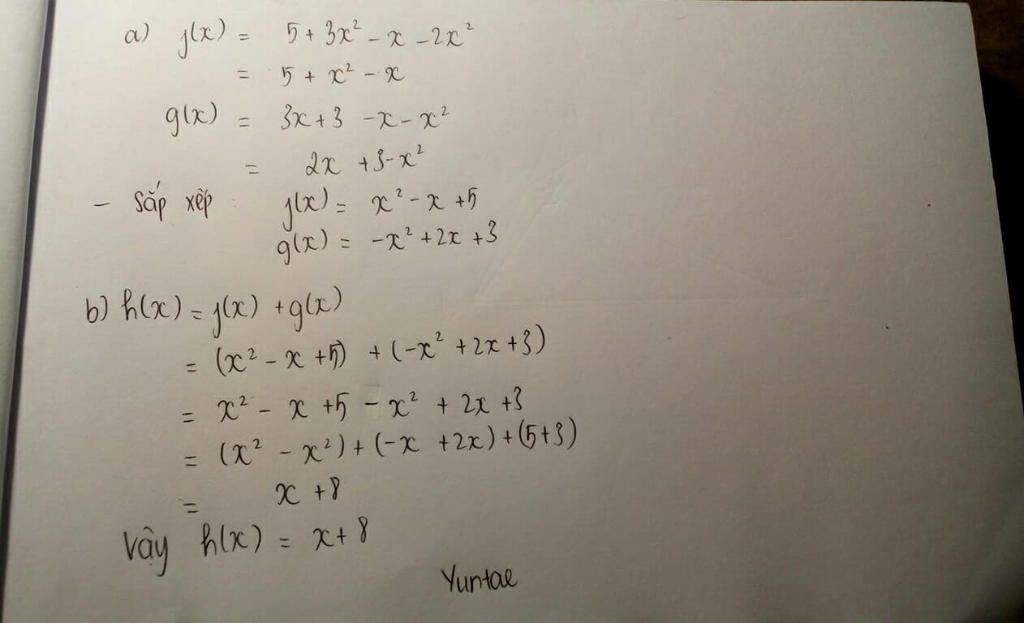 a) f(x) = 5 + 3x² - x - 2x²
= 5 + x² - x
g(x) = 3x + 3 - x - x²
= 2x + 3 - x²
- Sắp xếp : f(x) = x² - x + 5
g(x) = -x² + 2x + 3
b) h(x) = f(x) + g(x)
= (x² - x + 5) + (-x² + 2x + 3)
= x² - x + 5 - x² + 2x + 3
= (x² - x²) + (-x + 2x) + (5 + 3)
= x + 8
Vậy h(x) = x + 8
Yuntae